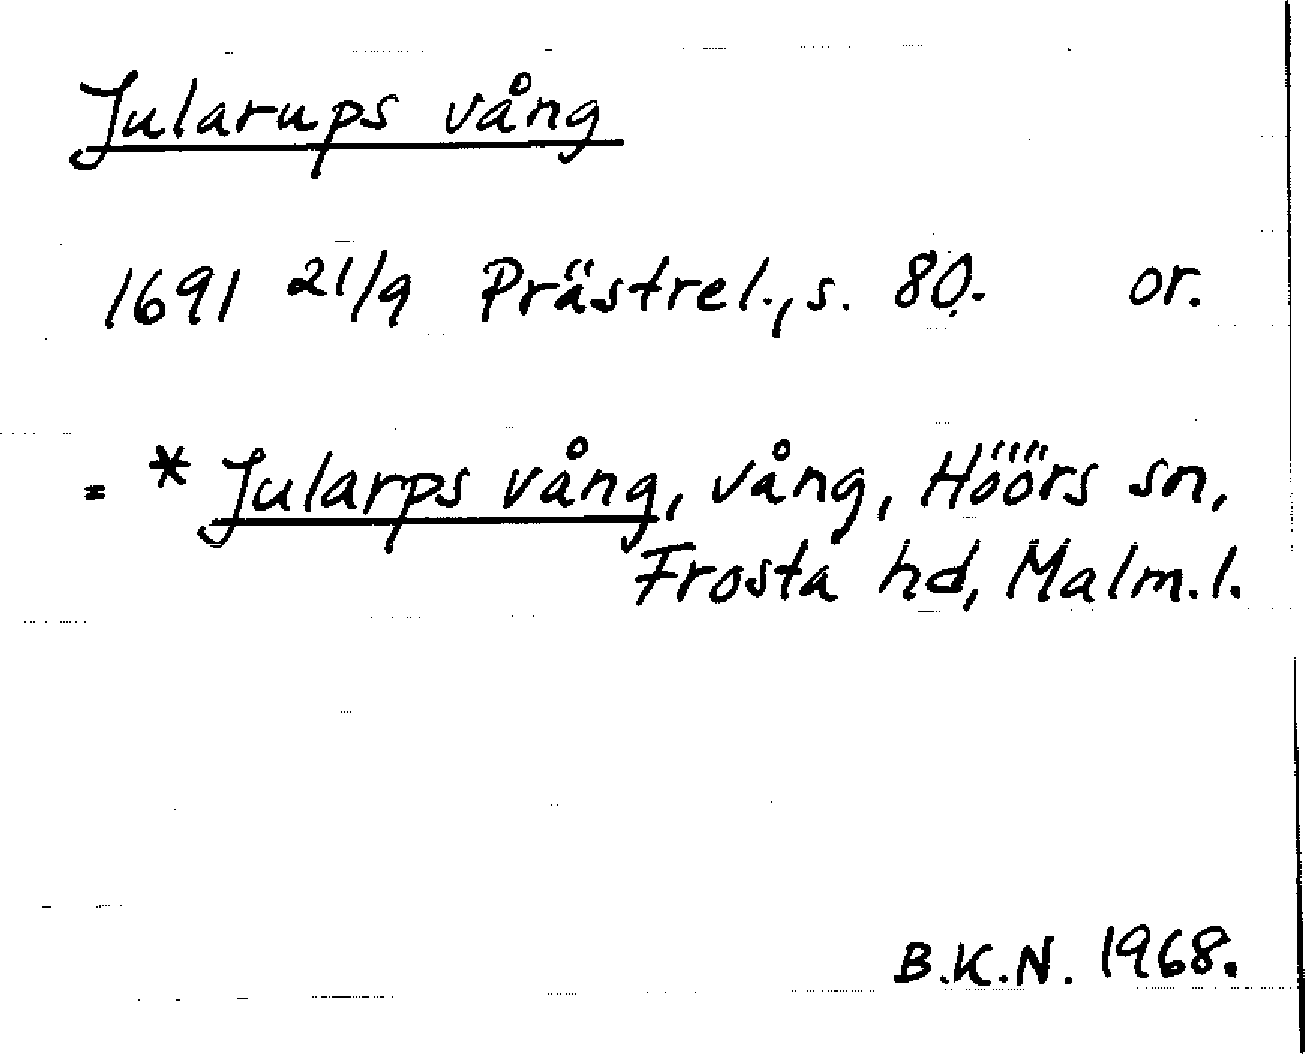 Jularups vång
1691 21/9 Prästrel., s. 80. or.
= * Jularps vång, vång, Höörs sn,
Frosta hd, Malm.l.
B.K.N. 1968.